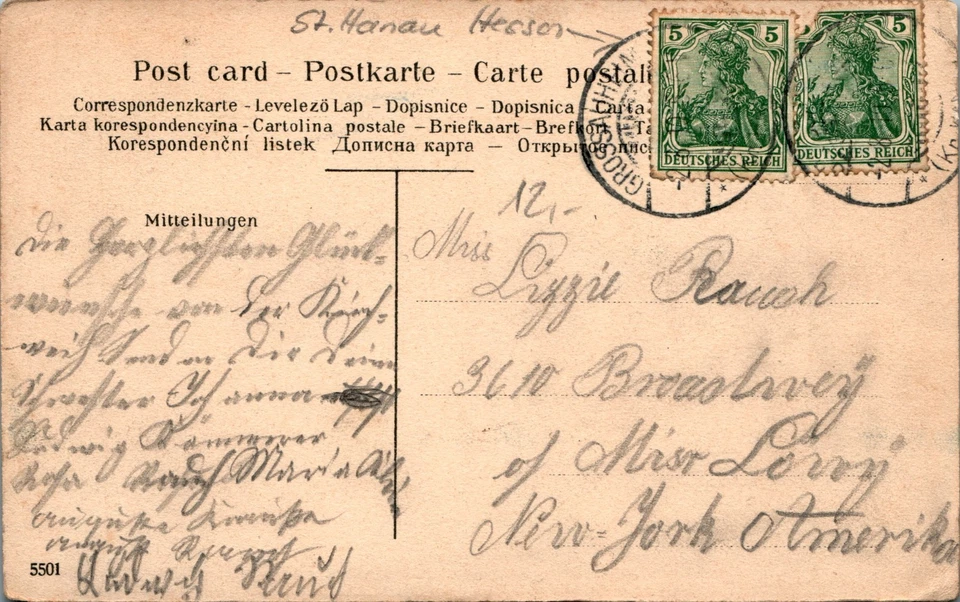 St. Hanau Hessen
Post card – Postkarte – Carte postal
Correspondenzkarte - Levelező Lap – Dopisnice - Dopisnica - Carta
Karta korespondencyina - Cartolina postale – Briefkaart – Brefkort – Ta
Korespondenční listek Дописна карта — Открытое пис
5 5
DEUTSCHES REICH
5 5
DEUTSCHES REICH
GROSSAUHEIM
Mitteilungen
Die herzlichsten Glück-
wünsche von der Kirch-
weih Send en Dir Deine
Schwester Johanna
Ludwig Kämmerer
Rosa Rauch Maria
Auguste
August Rauch
Rauch
12,-
Miss
Lizzie Rauch
3610 Broadwey
of Miss Löwy
New-York Amerika
5501